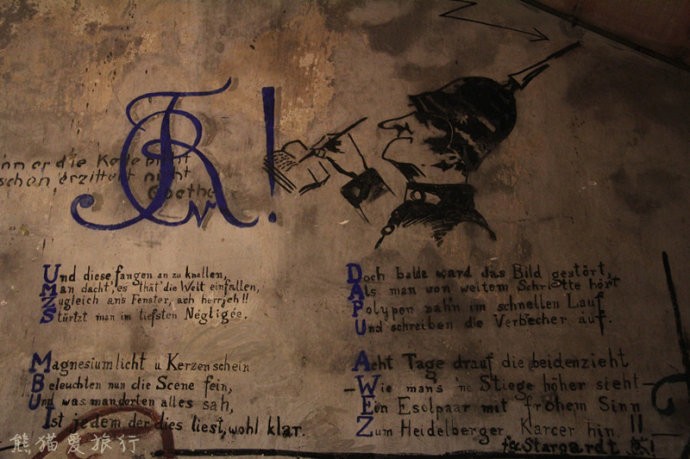 wenn er die Kette bricht
schen erzittert nicht
Goethe
Und diese fangen an zu knallen,
Man dacht', es that' die Welt einfallen,
Zugleich ans Fenster, ach herrjeh!!
Stürtzt man im tiefsten Négligée.
Magnesiumlicht u Kerzenschein
Beleuchten nun die Scene fein,
Und was man dorten alles sah,
Ist jedem der dies liest, wohl klar.
Doch balde ward das Bild gestört,
Als man von weitem Schritte hört
Polypen nah'n im schnellen Lauf
Und schreiben die Verbrecher auf.
Acht Tage drauf die beiden zieht
– Wie mans 'ne Stiege höher sieht –
Ein Eselpaar mit frohem Sinn
Zum Heidelberger Karcer hin !!
Stargardt
熊猫爱旅行